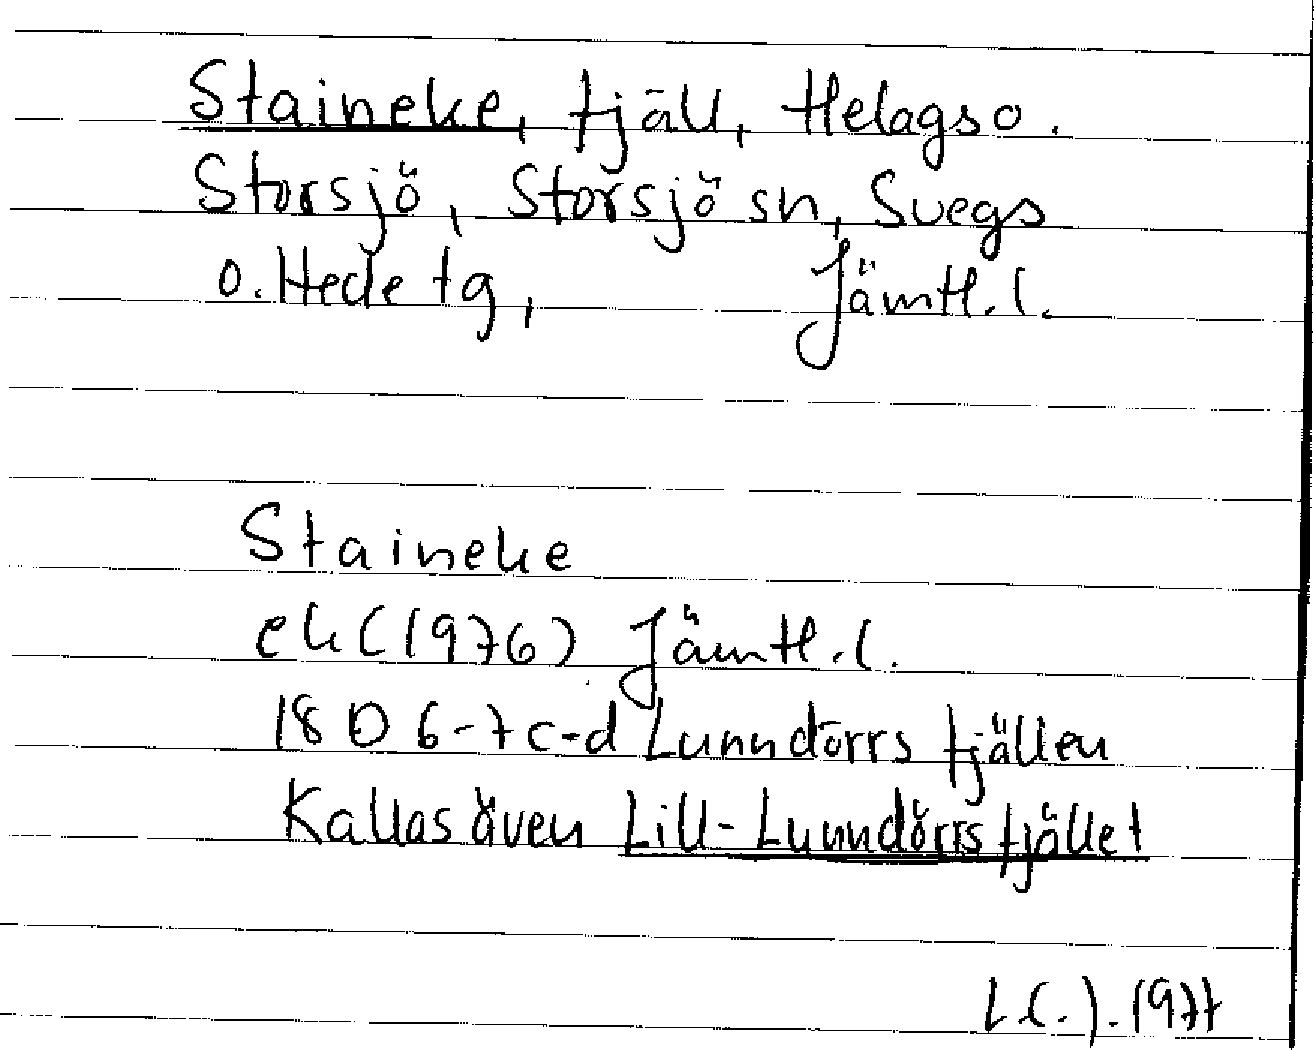 Staineke, fjäll, Helags o.
Storsjö, Storsjö sn, Svegs
o. Hede tg, Jämtl. l.
Staineke
ek (1976) Jämtl. l.
18 D 6-7 c-d Lunndörrsfjällen
Kallas även Lill-Lunndörrsfjället
1977